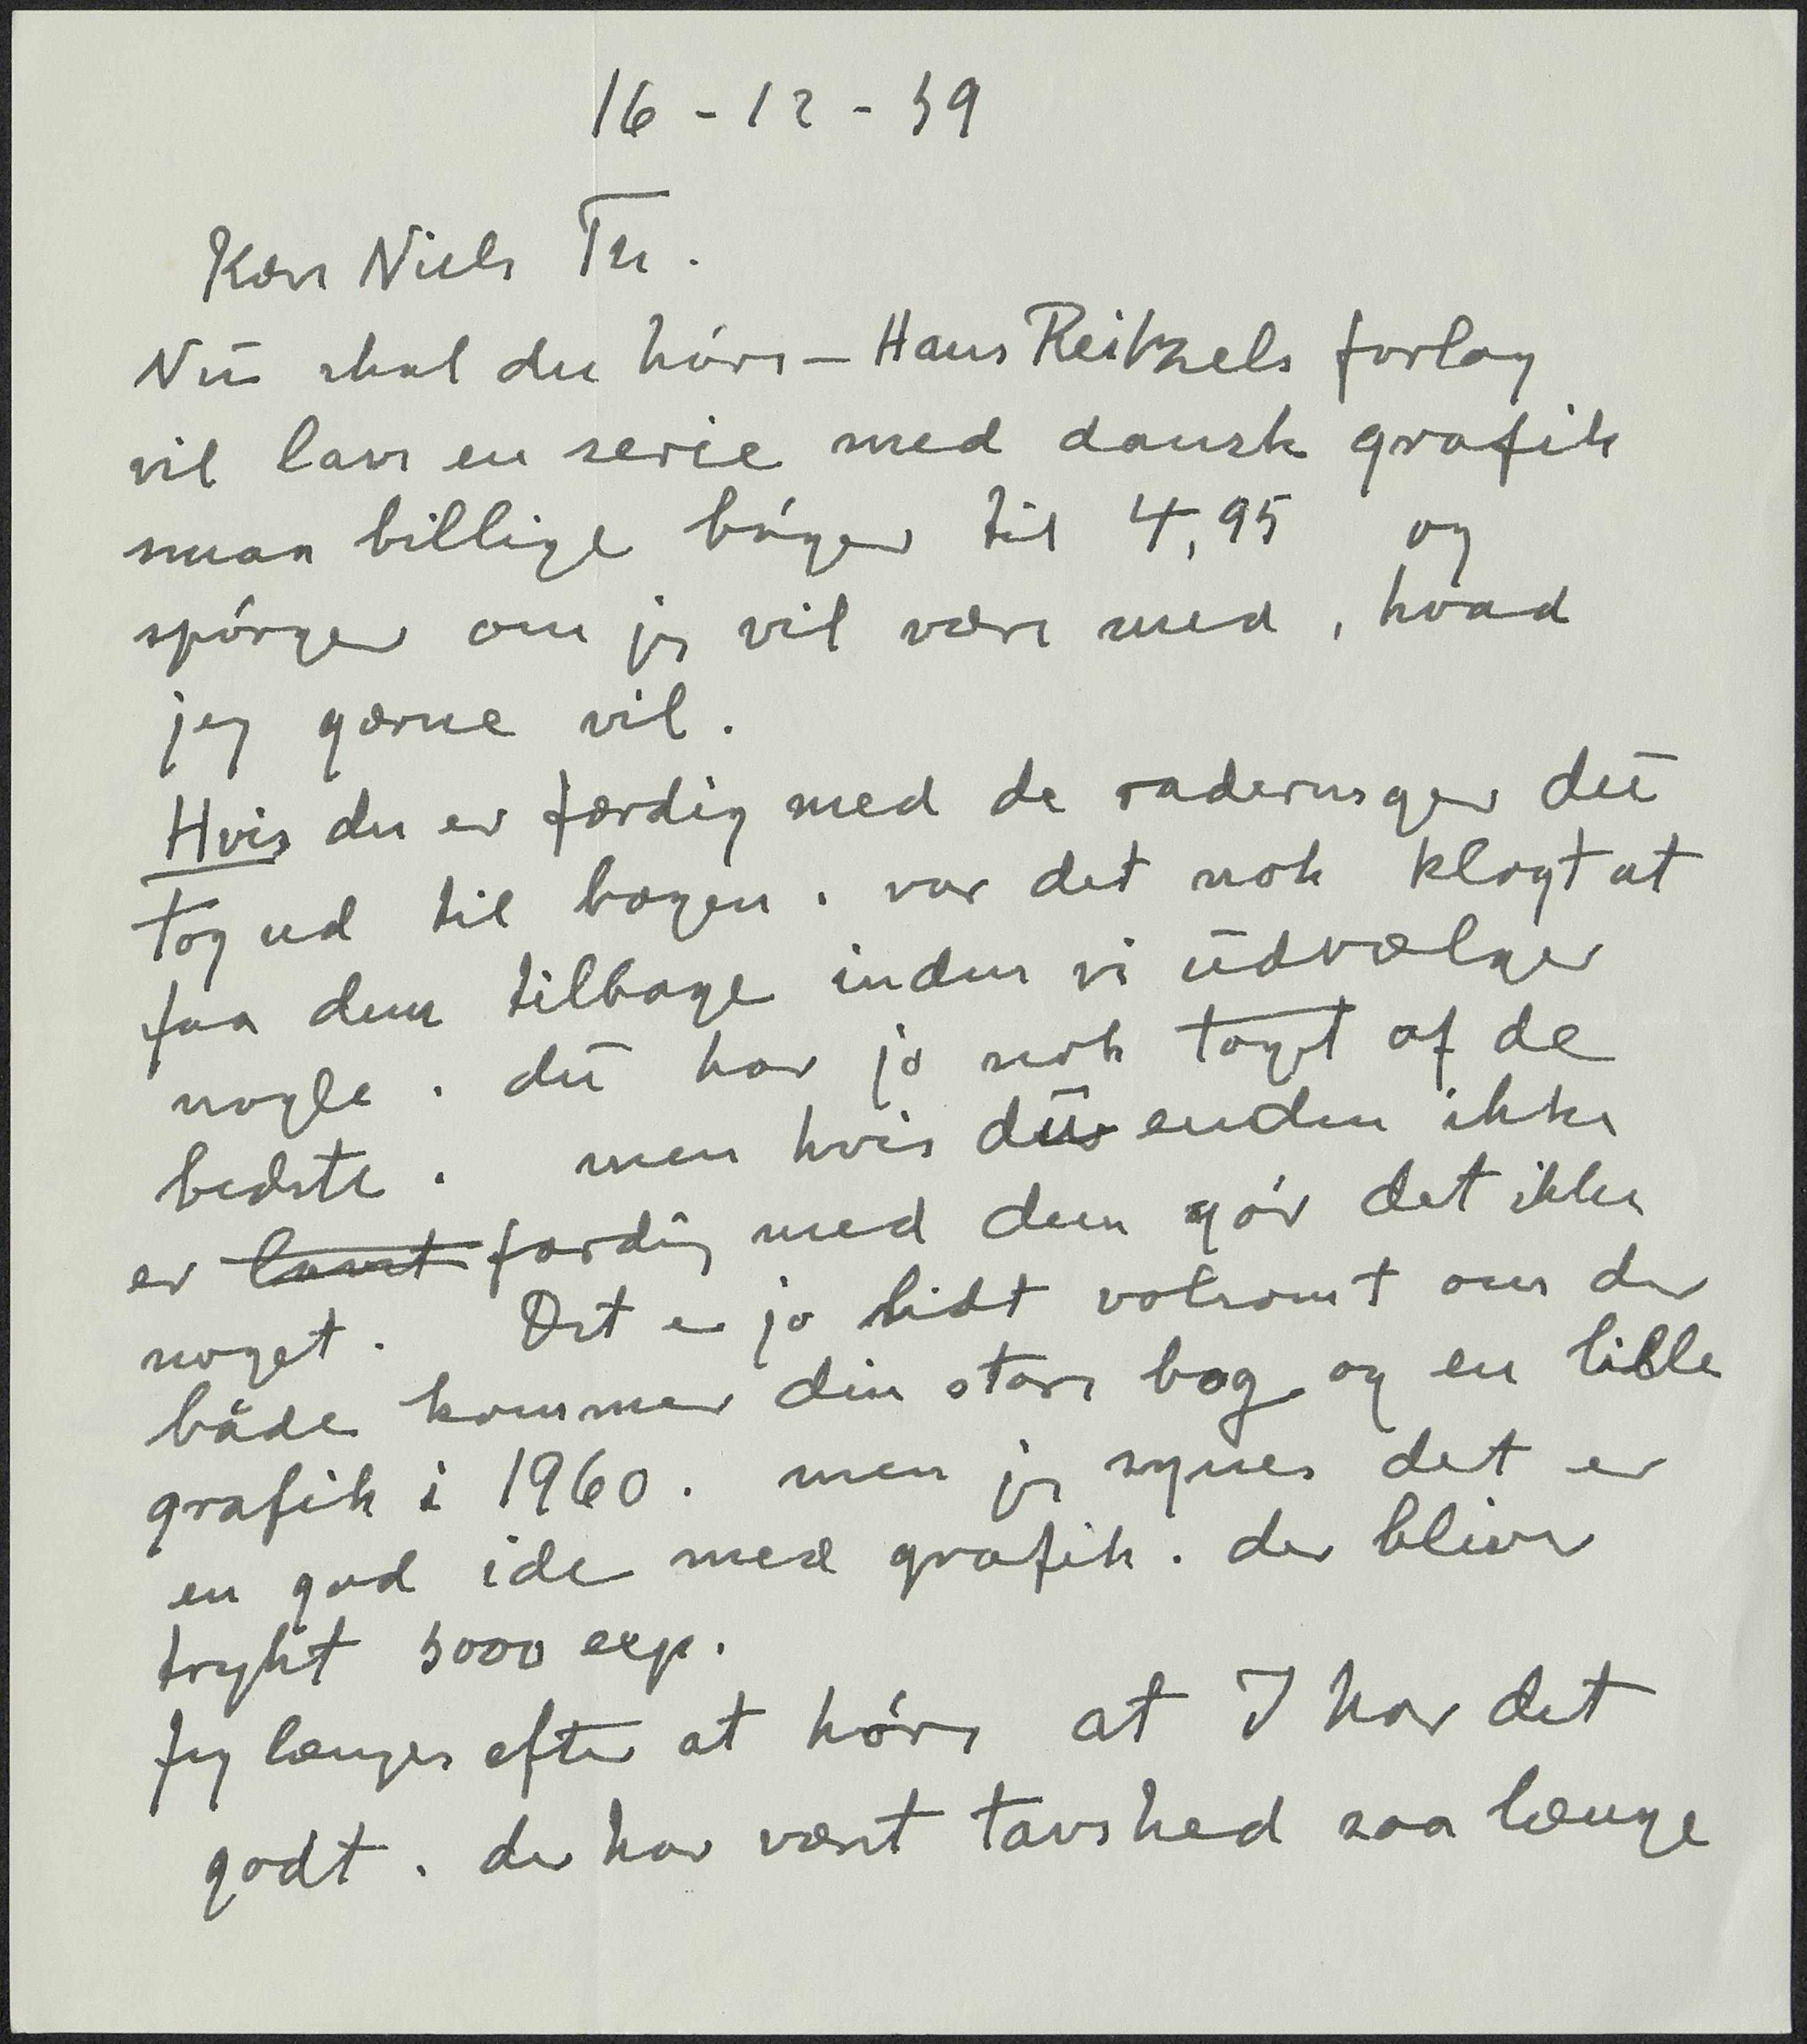 16-12-59
Kære Niels Th.
Nu skal du høre – Hans Reitzels forlag
vil lave en serie med dansk grafik
smaa billige bøger til 4,95 og
spørger om jeg vil være med, hvad
jeg gærne vil.
Hvis du er færdig med de raderinger du
tog ud til bogen. var det nok klogt at
faa dem tilbage inden vi udvælger
nogle. du har jo nok taget af de
bedste. men hvis du enden ikke
er lavet færdig med dem gør det ikke
noget. Det er jo lidt volsomt om der
både kommer din store bog og en lille
grafik i 1960. men jeg synes det er
en god ide med grafik. der bliver
trykt 5000 exp.
Jeg længes efter at høre at I har det
godt. der har været tavshed saa længe